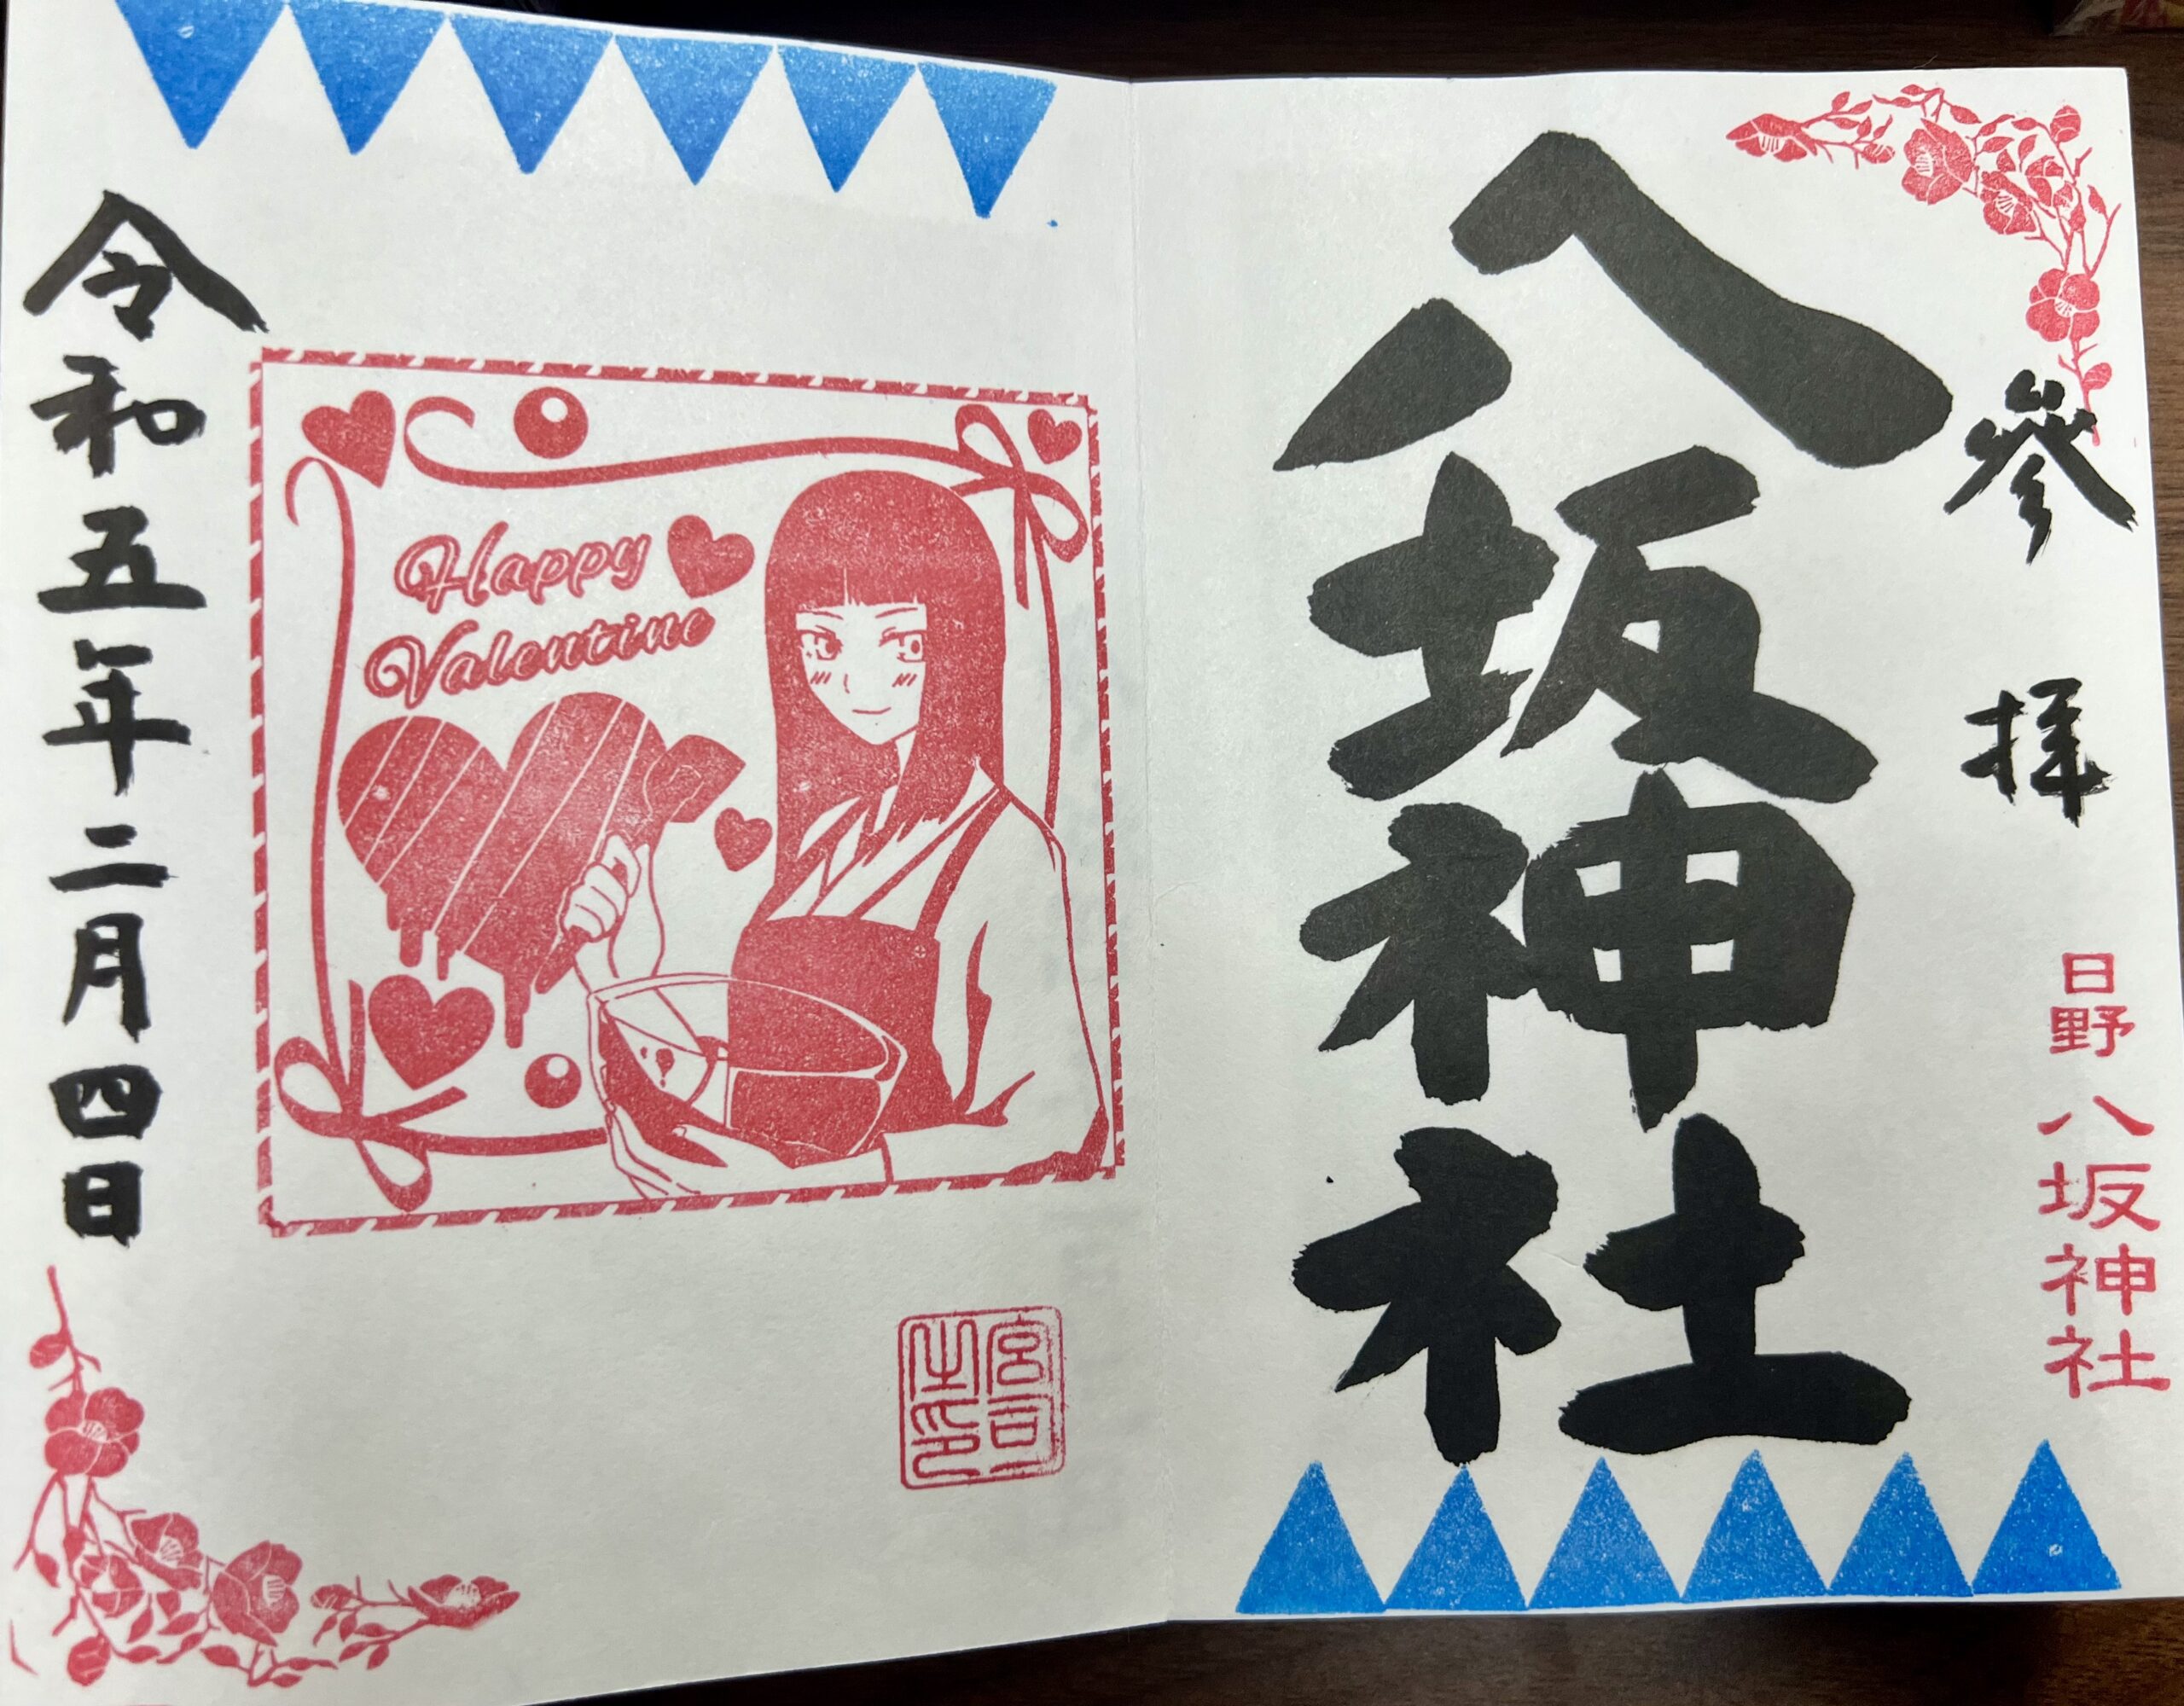 參拝
日野八坂神社
八坂神社
Happy
Valentine
宮司
之印
令和五年二月四日